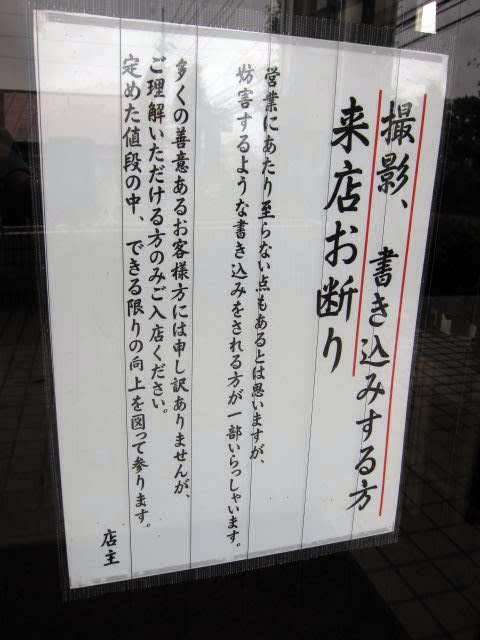 撮影、書き込みする方
来店お断り
営業にあたり至らない点もあるとは思いますが、
妨害するような書き込みをされる方が一部いらっしゃいます。
多くの善意あるお客様方には申し訳ありませんが、
ご理解いただける方のみご入店ください。
定めた値段の中、できる限りの向上を図って参ります。
店主